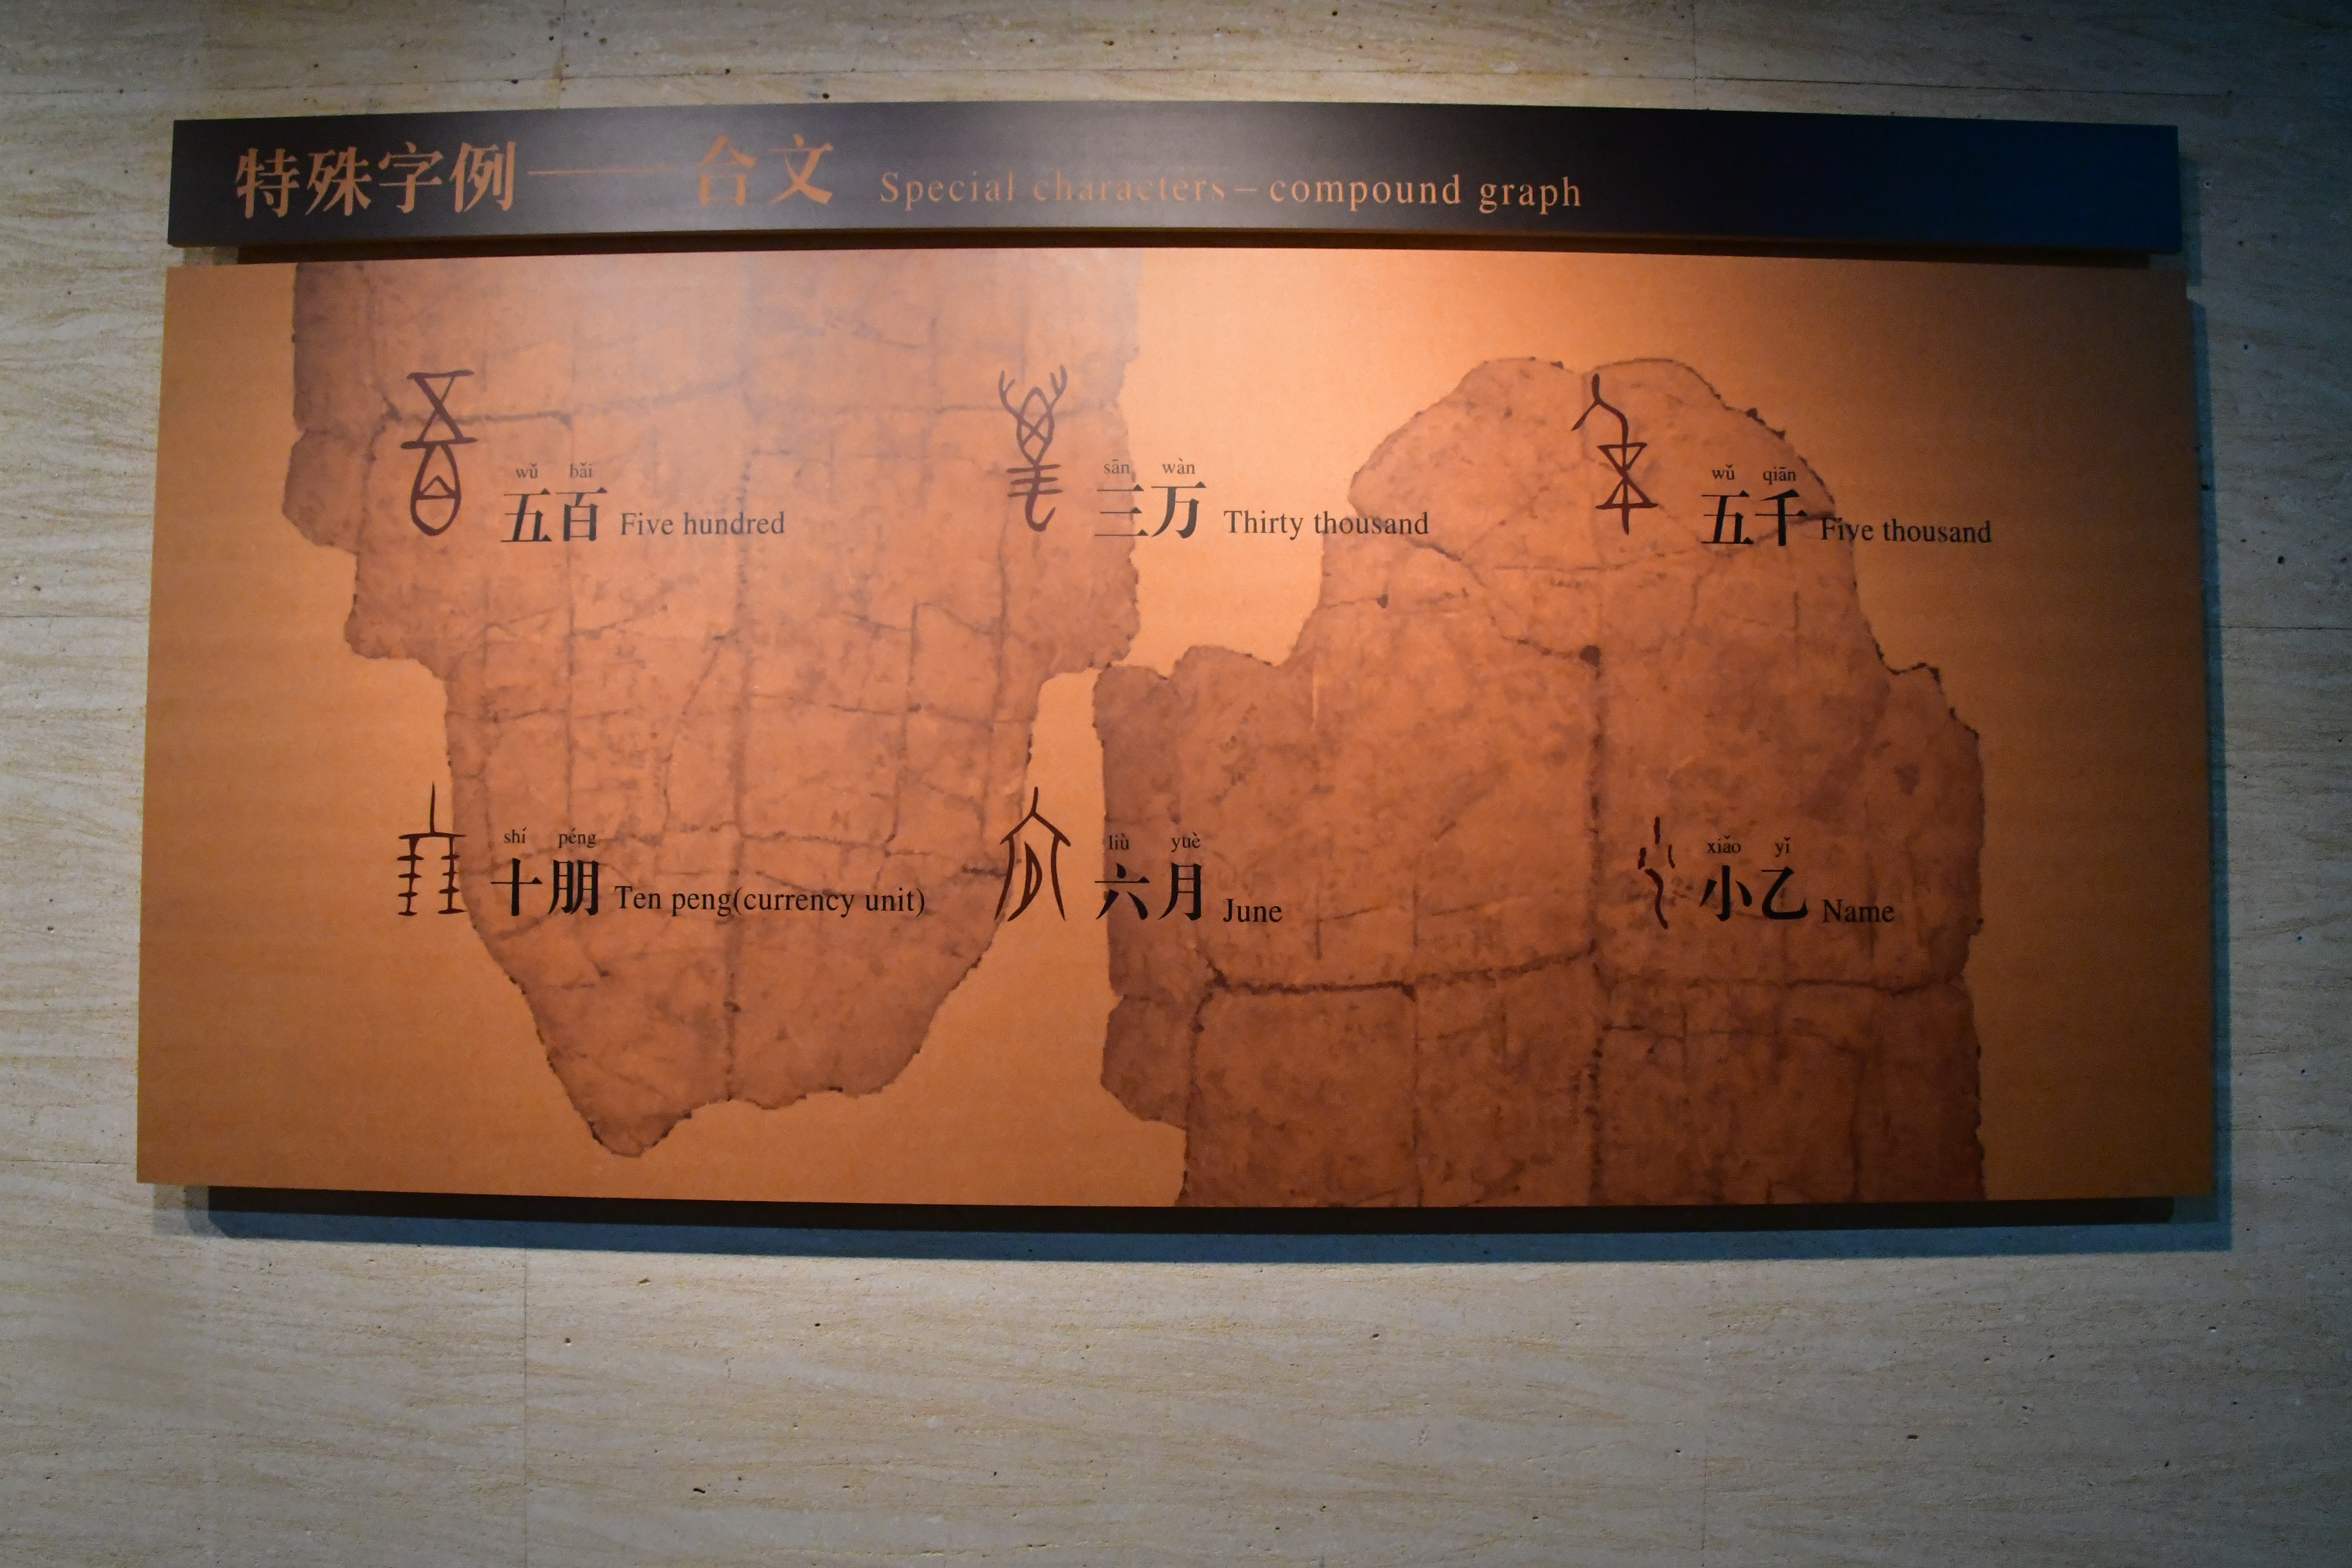 特殊字例——合文 Special characters – compound graph
wǔ bǎi
五百 Five hundred
sān wàn
三万 Thirty thousand
wǔ qiān
五千 Five thousand
shí péng
十朋 Ten peng(currency unit)
liù yuè
六月 June
xiǎo yǐ
小乙 Name